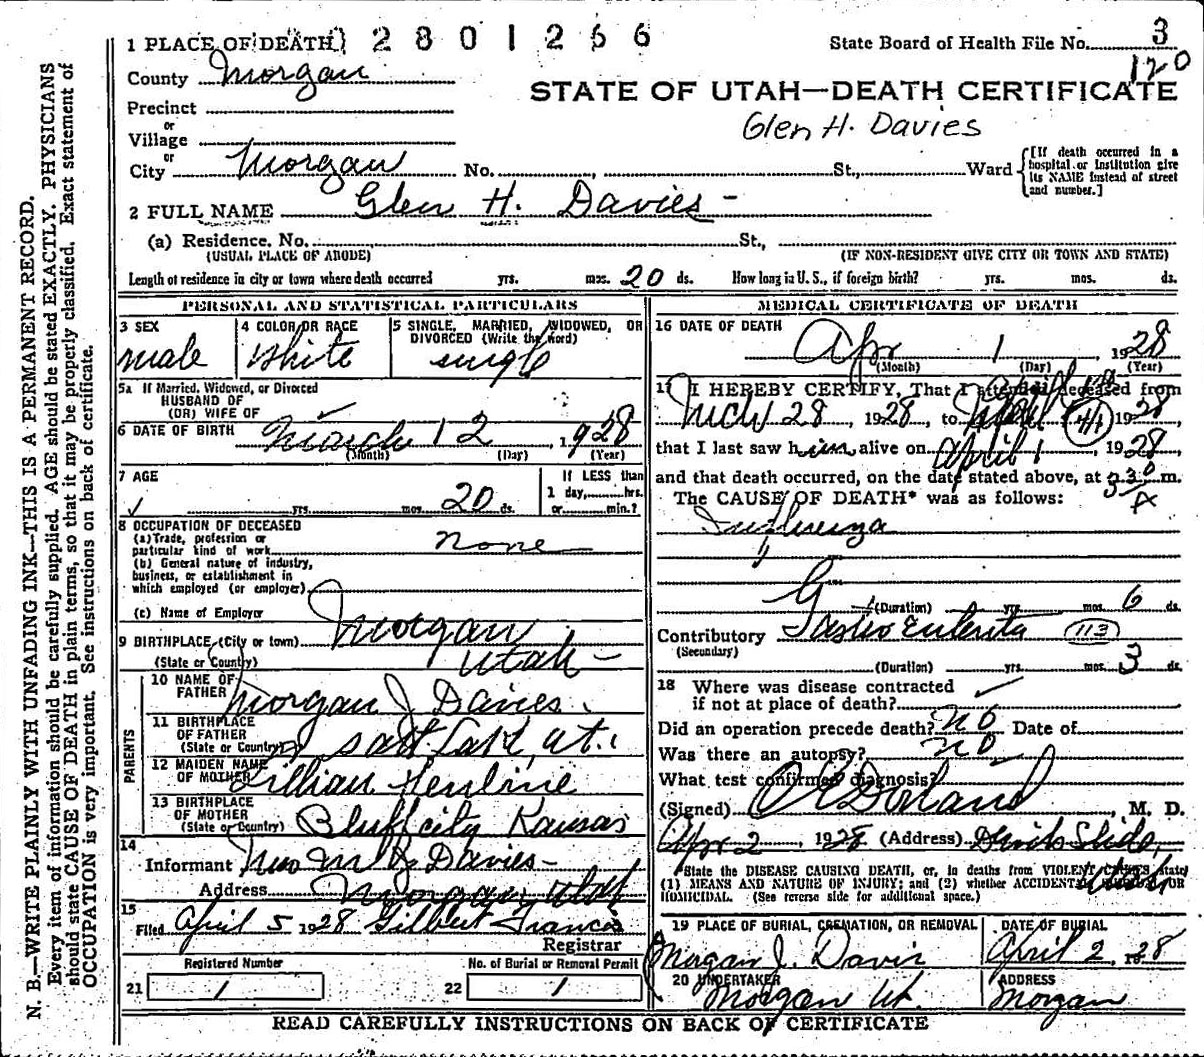 1 PLACE OF DEATH 2801266 State Board of Health File No. 3
120
County Morgan
STATE OF UTAH—DEATH CERTIFICATE
Precinct
Glen H. Davies
or
Village
or
City Morgan No. , St., Ward [If death occurred in a hospital or institution give its NAME instead of street and number.]
2 FULL NAME Glen H. Davies -
(a) Residence. No. St.,
(USUAL PLACE OF ABODE) (IF NON-RESIDENT GIVE CITY OR TOWN AND STATE)
Length of residence in city or town where death occurred yrs. mos. 20 ds. How long in U. S., if foreign birth? yrs. mos. ds.
PERSONAL AND STATISTICAL PARTICULARS
3 SEX 4 COLOR OR RACE 5 SINGLE, MARRIED, WIDOWED, OR
DIVORCED (Write the word)
male White single
5a If Married, Widowed, or Divorced
HUSBAND OF
(OR) WIFE OF
6 DATE OF BIRTH March 12 1928
(Month) (Day) (Year)
7 AGE If LESS than
yrs. mos. 20 ds. 1 day, hrs.
or min.?
8 OCCUPATION OF DECEASED
(a) Trade, profession or
particular kind of work none
(b) General nature of industry,
business, or establishment in
which employed (or employer)
(c) Name of Employer
9 BIRTHPLACE (City or town) Morgan
(State or Country) Utah -
PARENTS
10 NAME OF
FATHER Morgan J. Davies.
11 BIRTHPLACE
OF FATHER
(State or Country) Salt Lake, Ut.
12 MAIDEN NAME
OF MOTHER Lillian Henline
13 BIRTHPLACE
OF MOTHER
(State or Country) Bluff city Kansas
14
Informant Davies -
Address Morgan Utah
15
Filed April 5 1928 Gilbert Francis
Registrar
Registered Number No. of Burial or Removal Permit
21 1 22 1
MEDICAL CERTIFICATE OF DEATH
16 DATE OF DEATH
Apr 1, 1928
(Month) (Day) (Year)
17 I HEREBY CERTIFY, That I attended deceased from
Mch 28, 1928, to April 4/1 1928
that I last saw him alive on April 1, 1928,
and that death occurred, on the date stated above, at 330 m.
A
The CAUSE OF DEATH* was as follows:
Influenza
(Duration) yrs. mos. 6 ds.
Contributory Gastro Enterits 113
(Secondary)
(Duration) yrs. mos. 3 ds.
18 Where was disease contracted
if not at place of death?
Did an operation precede death? no Date of
Was there an autopsy? no
What test confirmed diagnosis?
(Signed) Dorland, M. D.
Apr 2, 1928 (Address) Devils Slide,
Utah
*State the DISEASE CAUSING DEATH, or, in deaths from VIOLENT CAUSES, state
(1) MEANS AND NATURE OF INJURY; and (2) whether ACCIDENTAL, OR
HOMICIDAL. (See reverse side for additional space.)
19 PLACE OF BURIAL, CREMATION, OR REMOVAL DATE OF BURIAL
Morgan J. Davis April 2, 1928
20 UNDERTAKER ADDRESS
Morgan Ut. Morgan
READ CAREFULLY INSTRUCTIONS ON BACK OF CERTIFICATE
N. B.—WRITE PLAINLY WITH UNFADING INK—THIS IS A PERMANENT RECORD.
Every item of information should be carefully supplied. AGE should be stated EXACTLY. PHYSICIANS
should state CAUSE OF DEATH in plain terms, so that it may be properly classified. Exact statement of
OCCUPATION is very important. See instructions on back of certificate.